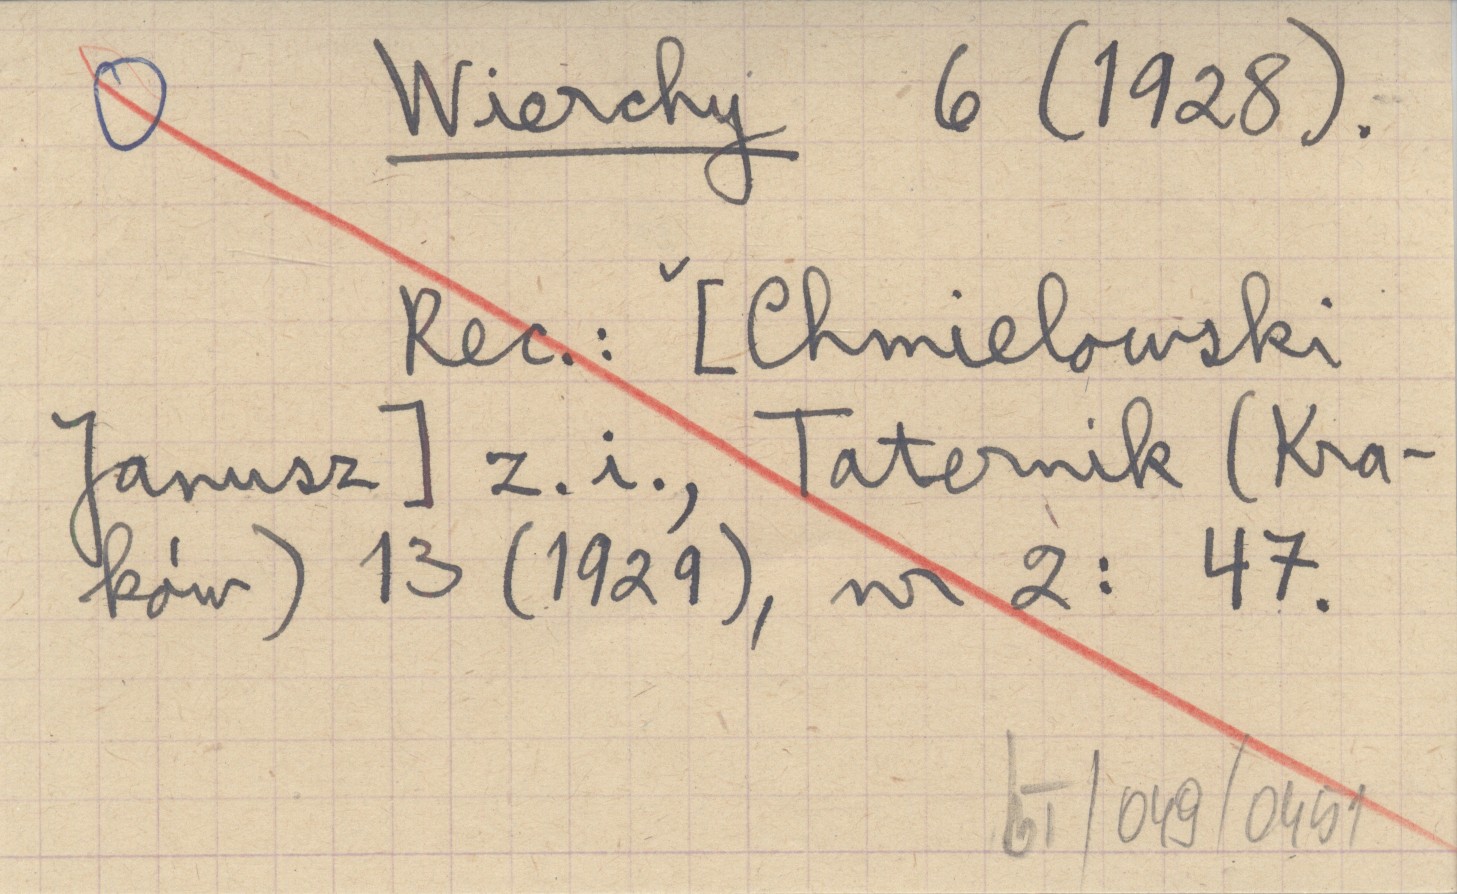 Wierchy 6 (1928).
Rec.: [Chmielowski
Janusz] z. i., Taternik (Kra-
ków) 13 (1929), nr 2: 47.
/049/0451